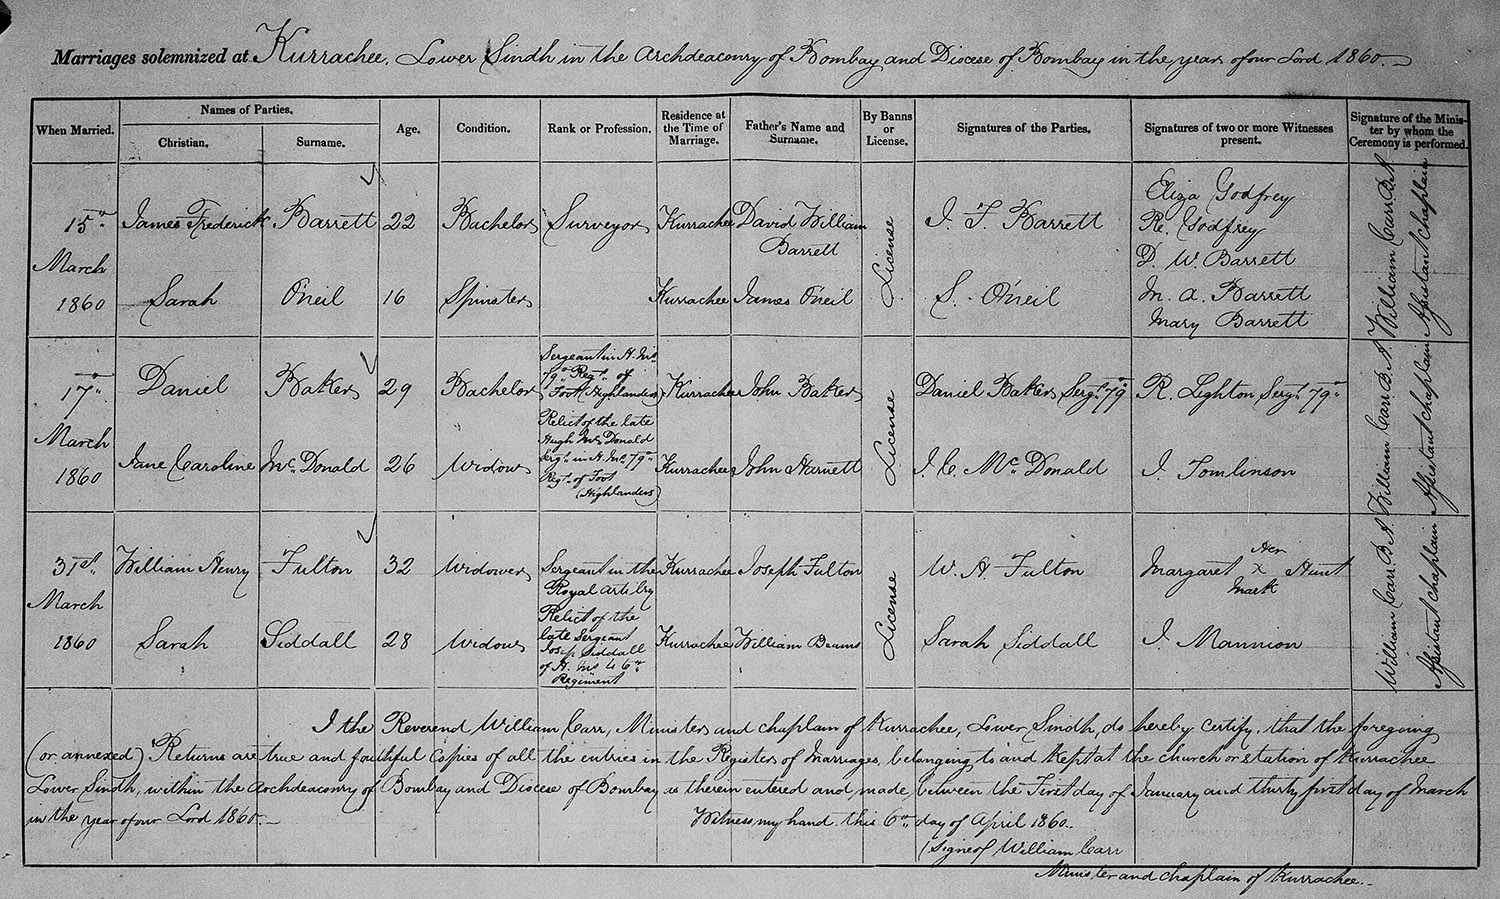 Marriages solemnized at Kurrachee, Lower Sindh in the Archdeaconry of Bombay and Diocese of Bombay in the year of our Lord 1860.
When Married.
Names of Parties.
Christian.
Surname.
Age.
Condition.
Rank or Profession.
Residence at
the Time of
Marriage.
Father's Name and
Surname.
By Banns
or
License.
Signatures of the Parties.
Signatures of two or more Witnesses
present.
Signature of the Minis-
ter by whom the
Ceremony is performed.
15th
March
1860
James Frederick
Barrett
22
Bachelor
Surveyor
Kurrachee
David William
Barrett
License
J. F. Barrett
Eliza Godfrey
Re. Godfrey
D. W. Barrett
M. A. Barrett
Mary Barrett
William Carr B.A.
Assistant Chaplain
Sarah
O'neil
16
Spinster
Kurrachee
James O'neil
S. O'neil
17th
March
1860
Daniel
Baker
29
Bachelor
Sergeant in H. Ms
79th Regt. of
Foot (Highlanders)
Kurrachee
John Baker
License
Daniel Baker Sergt. 79th
R. Lighton Sergt. 79th
William Carr B.A.
Assistant Chaplain
Jane Caroline
Mc. Donald
26
Widow
Relict of the late
Hugh Mc Donald
Sergt. in H. Ms. 79th
Regt. of Foot
(Highlanders)
Kurrachee
John Harnett
J. C. Mc. Donald
J. Tomlinson
31st
March
1860
William Henry
Fulton
32
Widower
Sergeant in the
Royal Artilry
Kurrachee
Joseph Fulton
License
W. H. Fulton
Her
Margaret x Hunt
Mark
William Carr B.A.
Assistant Chaplain
Sarah
Siddall
28
Widow
Relict of the
late Sergeant
Josp. Siddall
of H. Ms 46th
Regiment
Kurrachee
William Beams
Sarah Siddall
J. Mannion
I the Reverend William Carr, Minister and Chaplain of Kurrachee, Lower Sindh, do hereby certify, that the foregoing
(or annexed) Returns are true and faithful Copies of all the entries in the Register of Marriages, belonging to and kept at the church or station of Kurrachee
Lower Sindh, within the Archdeaconry of Bombay and Diocese of Bombay as therein entered and made, between the First day of January and thirty first day of March
in the year of our Lord 1860.
Witness my hand this 6th day of April 1860.
(Signed) William Carr
Minister and Chaplain of Kurrachee.